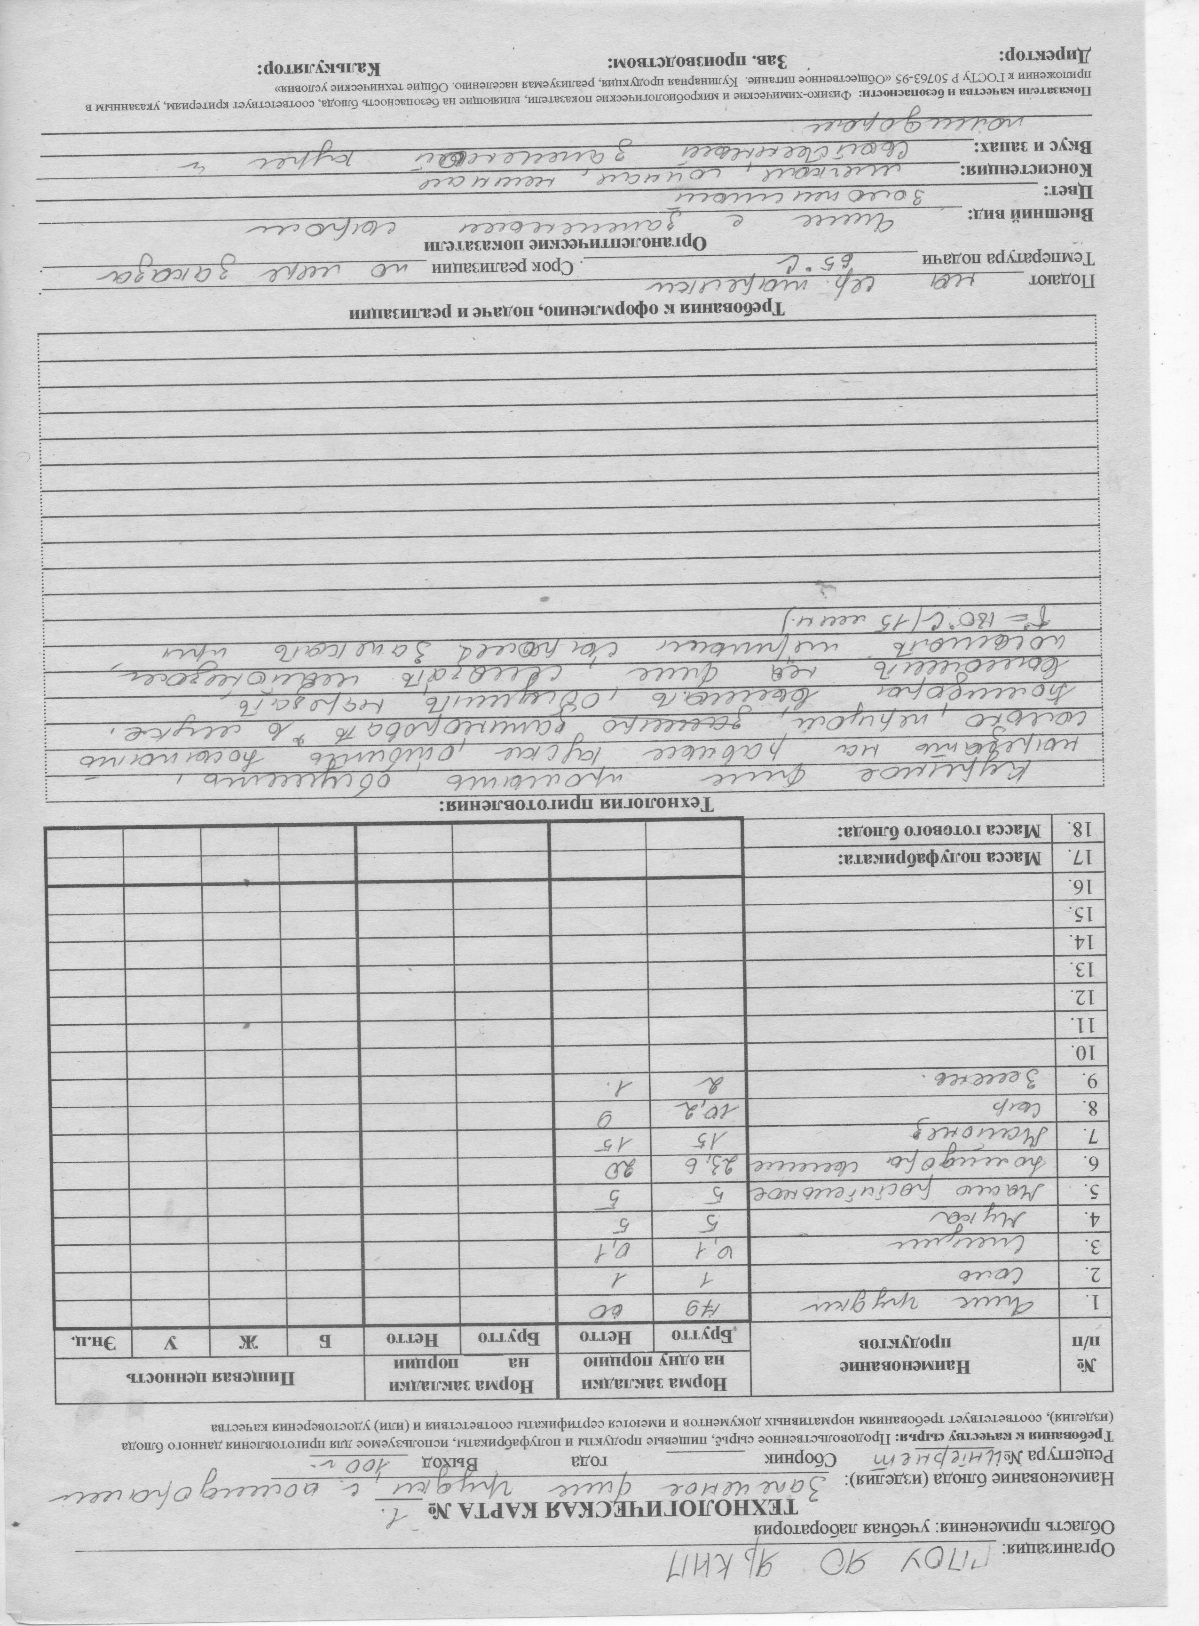 Организация: ГПОУ ЯО ЯрКИП
Область применения: учебная лаборатория
ТЕХНОЛОГИЧЕСКАЯ КАРТА № 1.
Наименование блюда (изделия): Запеченое филе грудки с помидорами
Рецептура № Интернет Сборник ______ года Выход 100 г.
Требования к качеству сырья: Продовольственное сырьё, пищевые продукты и полуфабрикаты, используемое для приготовления данного блюда
(изделия), соответствует требованиям нормативных документов и имеются сертификаты соответствия и (или) удостоверения качества
№ п/п Наименование продуктов Норма закладки на одну порцию Норма закладки на ____ порции Пищевая ценность
Брутто Нетто Брутто Нетто Б Ж У Эн.ц.
1. Филе грудки 60
2. Соль 1 1
3. Специи 0,1 0,1
4. Мука 5 5
5. Масло растительное 5 5
6. Помидоры свежие 23,6 20
7. Майонез 15 15
8. Сыр 10,2 9
9. Зелень. 2 1.
10.
11.
12.
13.
14.
15.
16.
17. Масса полуфабриката:
18. Масса готового блюда:
Технология приготовления:
Куриное филе промыть, обсушить,
нарезать на равные куски, отбить, посыпать
солью, перцем, запанировать в муке.
Помидоры вымыть, обсушить, нарезать
выложить на филе, смазать майонезом,
посыпать тертым сыром запекать при
t = 180°C (15 мин.)
Требования к оформлению, подаче и реализации
Подают на тарелки
Температура подачи 65°C. Срок реализации по мере заказа.
Органолептические показатели
Внешний вид: Филе с запеченым сыром
Цвет: Золотистый
Консистенция: мягкая, сочная, нежная
Вкус и запах: свойственный запеченой курки и
помидорам.
Показатели качества и безопасности: Физико-химические и микробиологические показатели, влияющие на безопасность блюда, соответствует критериям, указанным в
приложении к ГОСТу Р 50763-95 «Общественное питание. Кулинарная продукция, реализуемая населению. Общие технические условия»
Директор: Зав. производством: Калькулятор: